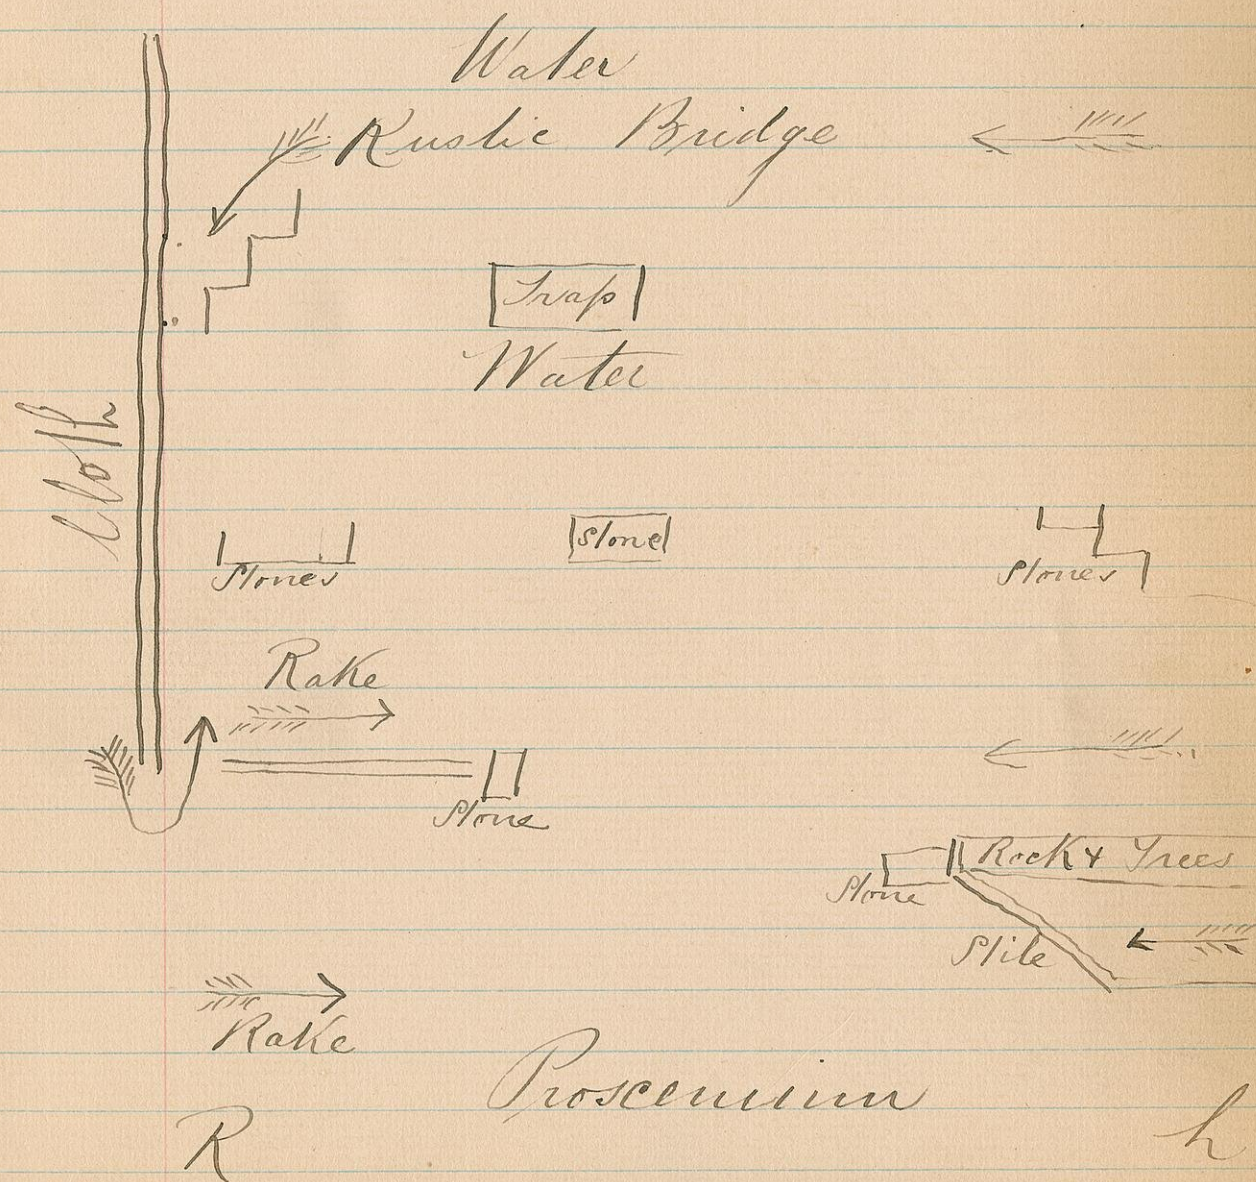 Water
Rustic Bridge
Trap
Water
Cloth
Stones
Stone
Stones
Rake
Stone
Rock & Trees
Stone
Stile
Rake
Proscenium
R